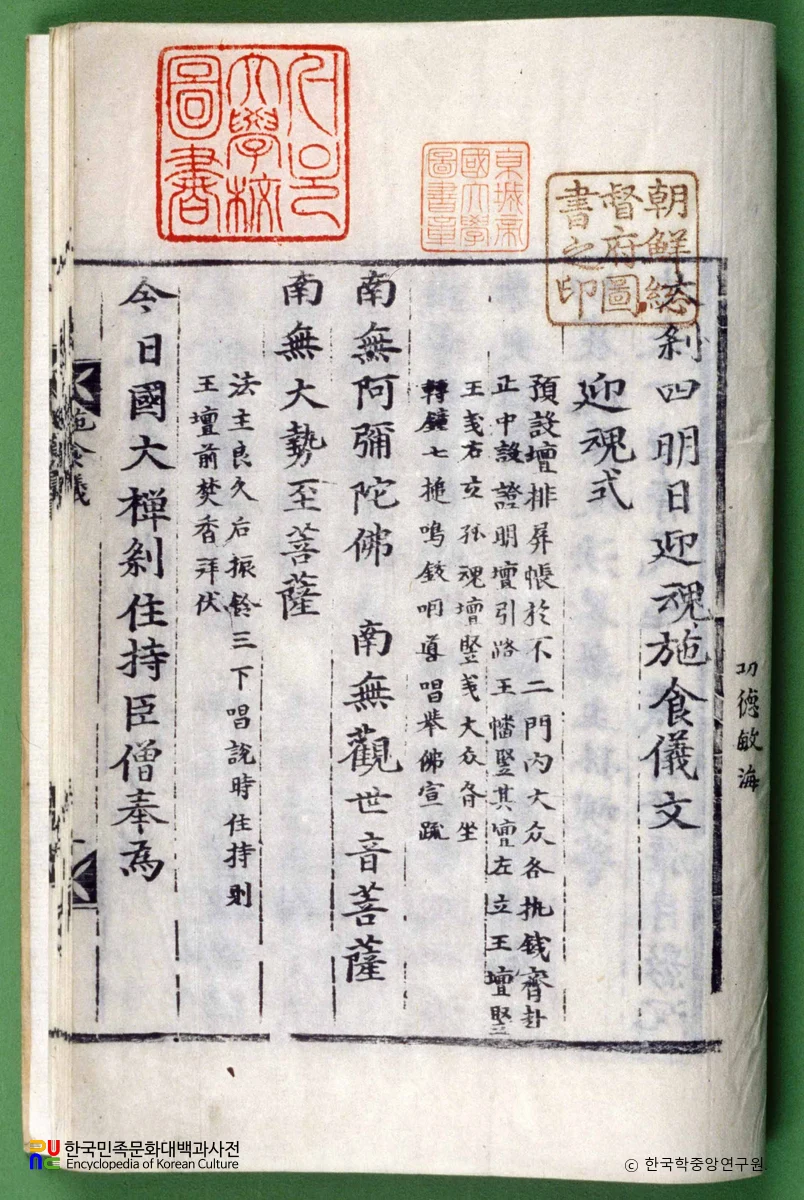 서울大學校圖書
京城帝國大學圖書章
朝鮮総督府圖書之印
大刹四明日迎魂施食儀文
迎魂式
預設壇排屛帳於不二門內大众各执鈸齊卦
正中設證明壇引路王幡竪其壇左立王壇竪
王右立孤魂壇竪大众各坐
轉鐘七搥鳴鈸咽導唱擧佛宣疏
南無阿彌陀佛 南無觀世音菩薩
南無大勢至菩薩
法主良久后振鈴三下唱說時住持則
王壇前焚香拜伏
今日國大禪刹住持臣僧奉爲
施食儀
功德敏海
한국민족문화대백과사전
Encyclopedia of Korean Culture
ⓒ 한국학중앙연구원